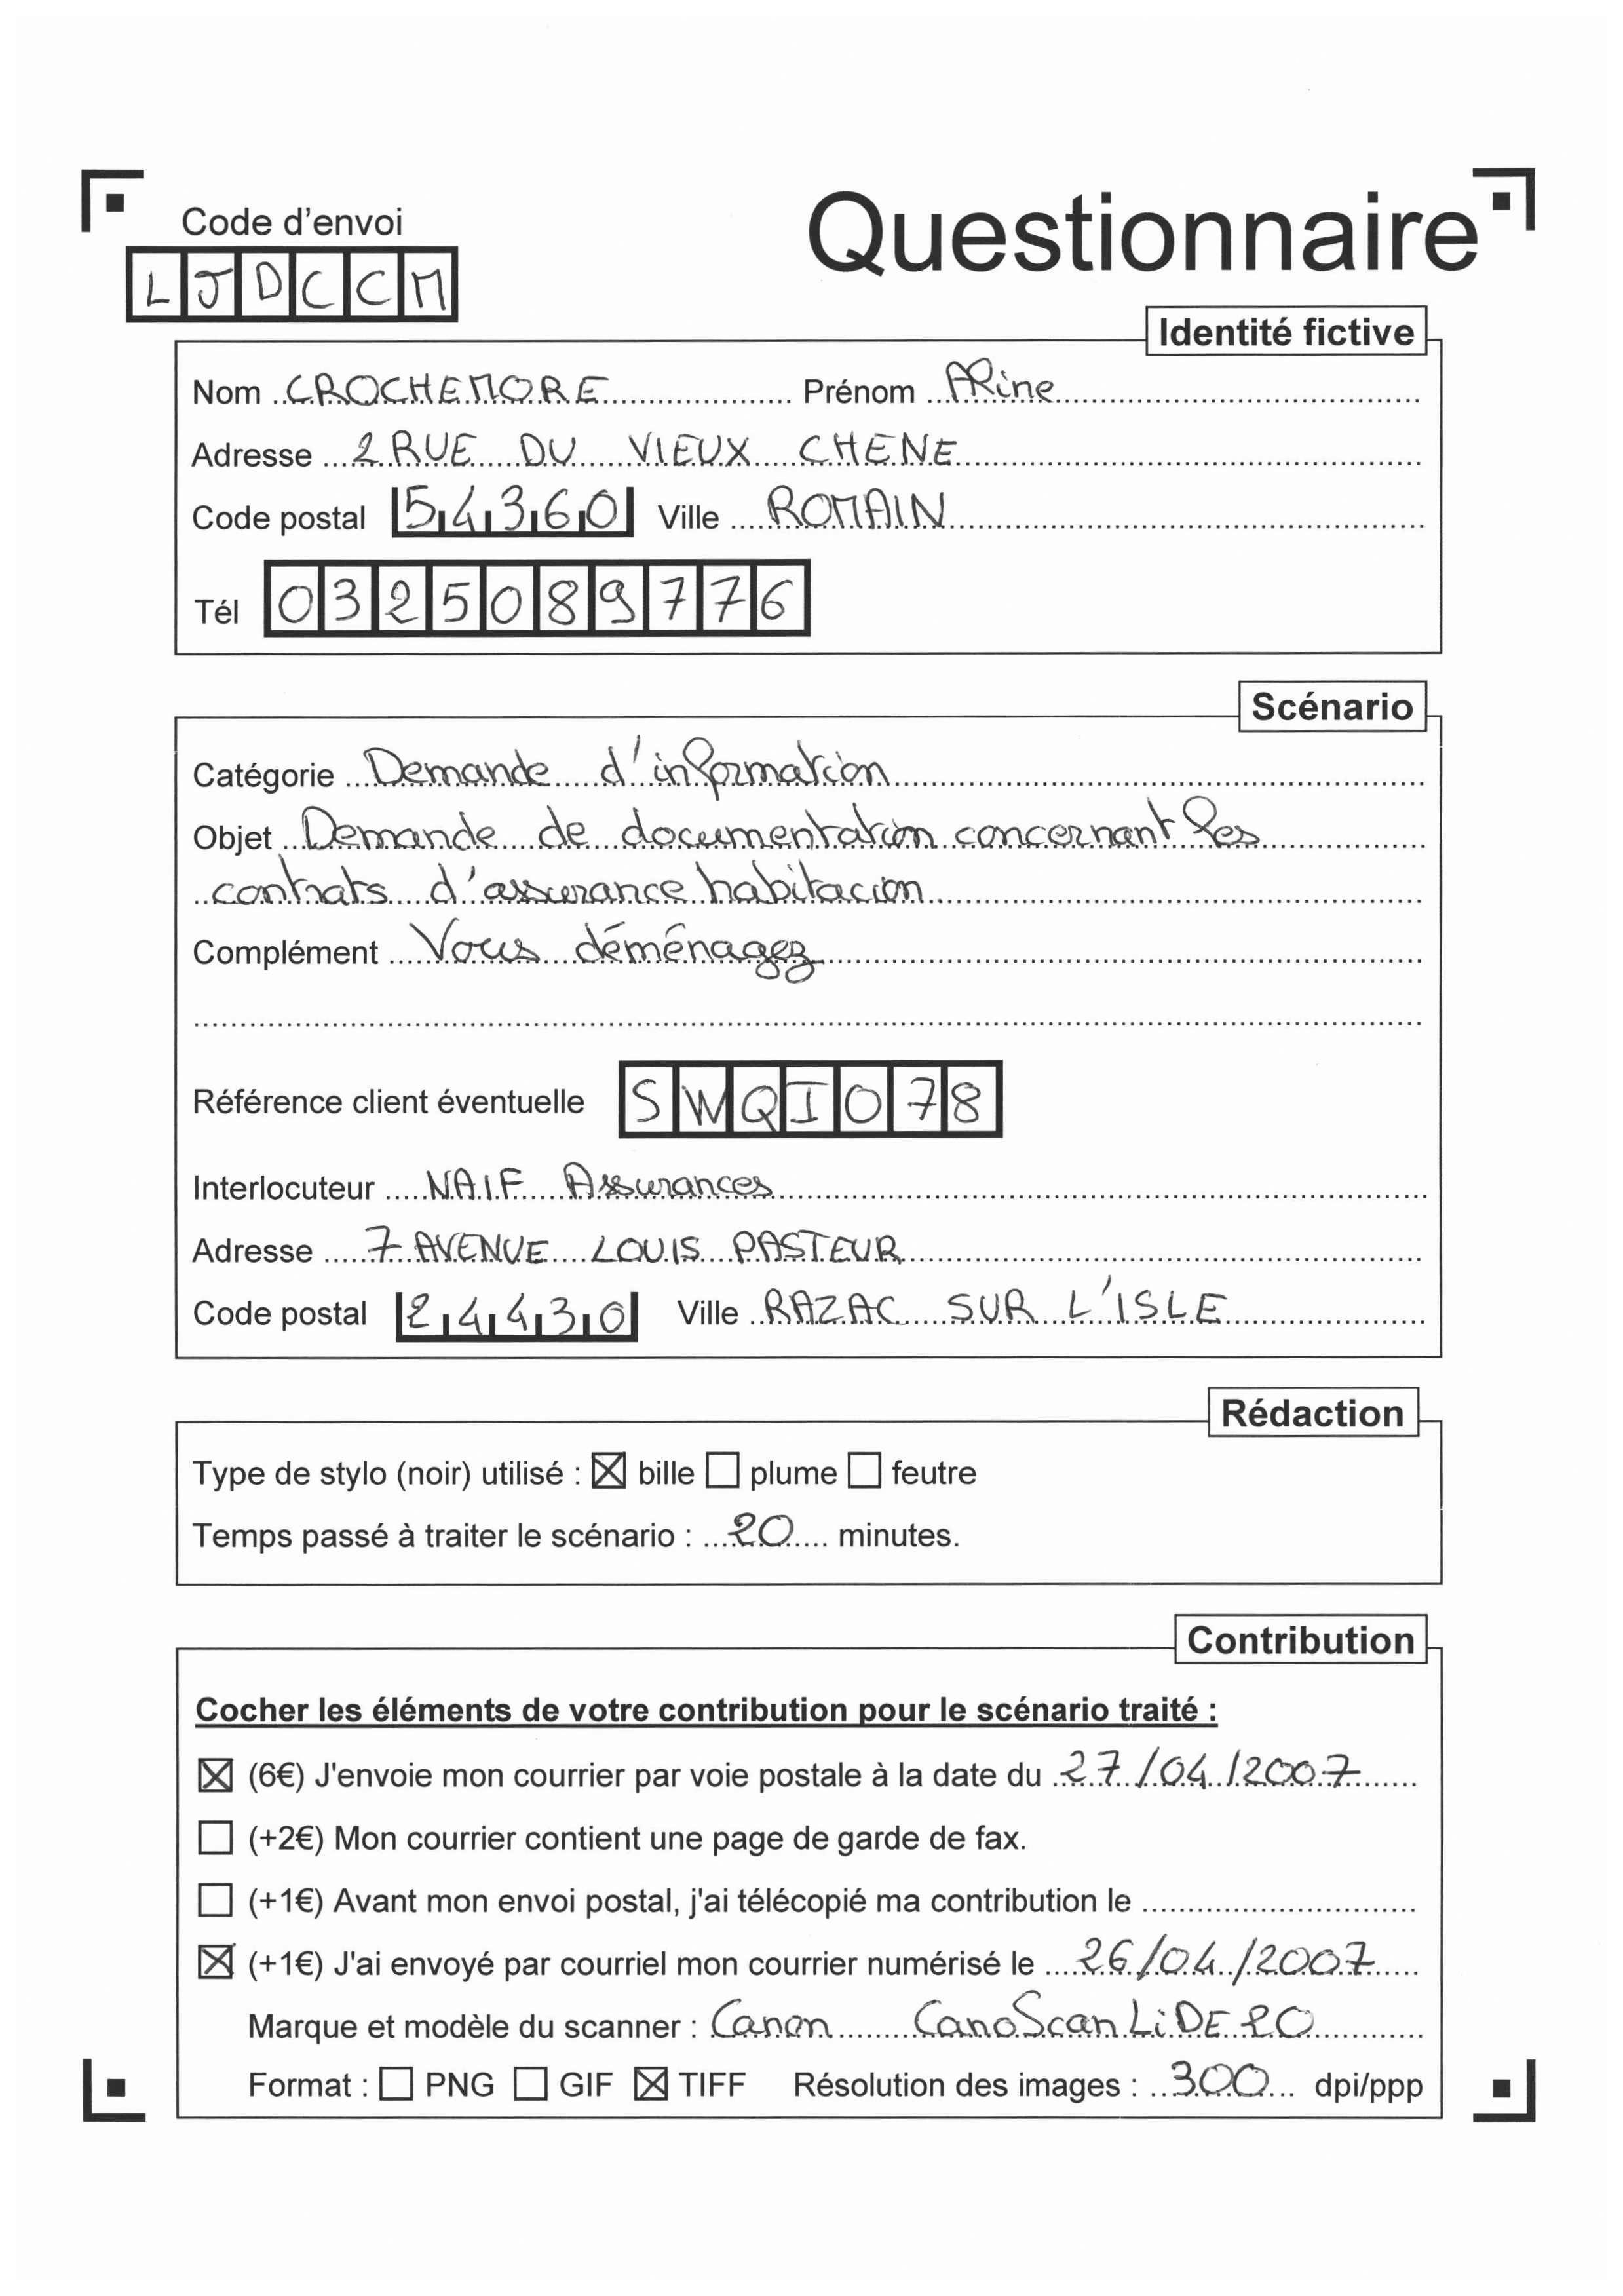 Code d'envoi
Questionnaire
LJDCCM
Identité fictive
Nom CROCHEMORE Prénom ARine
Adresse 2 RUE DU VIEUX CHENE
Code postal 54360 Ville ROMAIN
Tél 0325089776
Scénario
Catégorie Demande d'information
Objet Demande de documentation concernant les
contrats d'assurance habitation
Complément Vous déménagez
Référence client éventuelle SWQI078
Interlocuteur NAIF Assurances
Adresse 7 AVENUE LOUIS PASTEUR
Code postal 24430 Ville RAZAC SUR L'ISLE
Rédaction
Type de stylo (noir) utilisé : ☒ bille ☐ plume ☐ feutre
Temps passé à traiter le scénario : 20 minutes.
Contribution
Cocher les éléments de votre contribution pour le scénario traité :
☒ (6€) J'envoie mon courrier par voie postale à la date du 27/04/2007
☐ (+2€) Mon courrier contient une page de garde de fax.
☐ (+1€) Avant mon envoi postal, j'ai télécopié ma contribution le
☒ (+1€) J'ai envoyé par courriel mon courrier numérisé le 26/04/2007
Marque et modèle du scanner : Canon CanoScan LiDE 20
Format : ☐ PNG ☐ GIF ☒ TIFF Résolution des images : 300 dpi/ppp